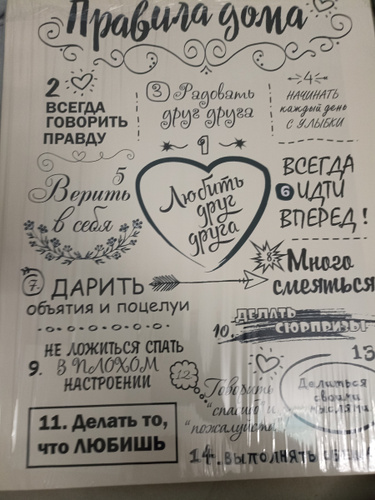 Правила дома
1
Любить
друг
друга
2
ВСЕГДА
ГОВОРИТЬ
ПРАВДУ
3 Радовать
друг друга
4
НАЧИНАТЬ
каждый день
С УЛЫБКИ
5
Верить
в себя
ВСЕГДА
6 ИДТИ
ВПЕРЕД!
7. ДАРИТЬ
объятия и поцелуи
8.
Много
смеяться
9. НЕ ЛОЖИТЬСЯ СПАТЬ
В ПЛОХОМ
НАСТРОЕНИИ
10. ДЕЛАТЬ
СЮРПРИЗЫ
11. Делать то,
что ЛЮБИШЬ
12
Говорить
"спасибо" и
"пожалуйста"
13
Делиться
своими
мыслями
14. ВЫПОЛНЯТЬ